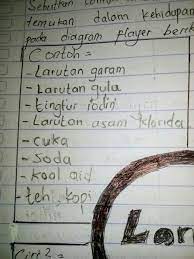 Sebutkan contoh
temukan dalam kehidupan
pada diagram flayer beri
Contoh =
- Larutan garam
- Larutan gula
- tingtur iodin
- Larutan asam klorida
- cuka
- soda
- kool aid
- teh, kopi
Lar
Ciri2 =